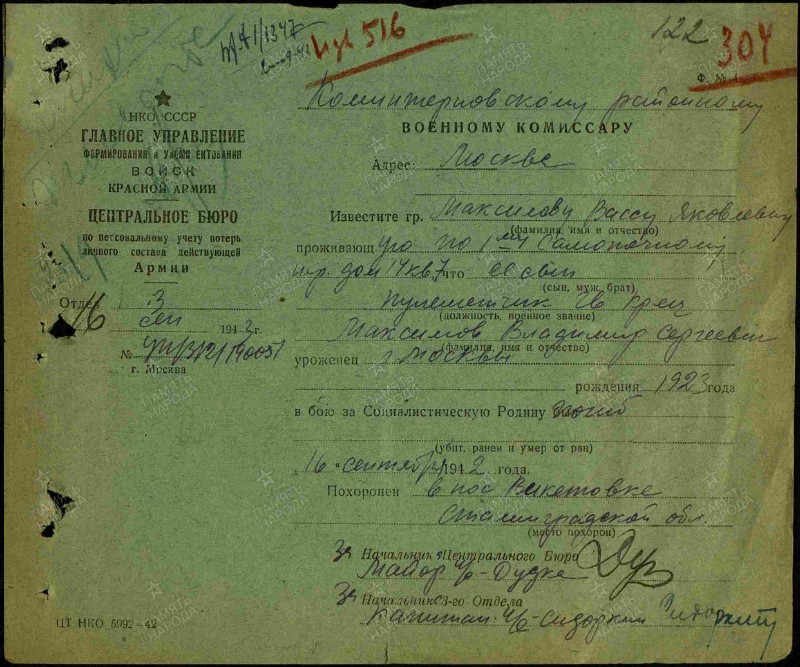 Инд 516
122
304
Ф. №
Коминтерновскому районному
ВОЕННОМУ КОМИССАРУ
Адрес: Москве
НКО СССР
ГЛАВНОЕ УПРАВЛЕНИЕ
ФОРМИРОВАНИЯ И УКОМПЛЕКТОВАНИЯ
ВОЙСК
КРАСНОЙ АРМИИ
ЦЕНТРАЛЬНОЕ БЮРО
по персональному учету потерь
личного состава действующей
Армии
Отдел 3
16 сен 1943 г.
№
г. Москва
Известите гр. Максимову Вассу Яковлевну
(фамилия, имя и отчество)
проживающую по 1му Самотечному
пер. дом 14 кв 7 что ее сын
(сын, муж, брат)
пулеметчик гв кр-ец
(должность, военное звание)
Максимов Владимир Сергеевич
(фамилия, имя и отчество)
уроженец г Москвы
рождения 1923 года
в бою за Социалистическую Родину погиб
(убит, ранен и умер от ран)
„16" сентября 1942 года.
Похоронен в пос Викетовке
Сталинградской обл.
(место похорон)
За Начальник Центрального Бюро
Майор а/с - Дудка
За Начальник 3-го Отдела
Капитан а/с - Сидоркин
ЦТ НКО 5992-42
ПАМЯТЬ НАРОДА